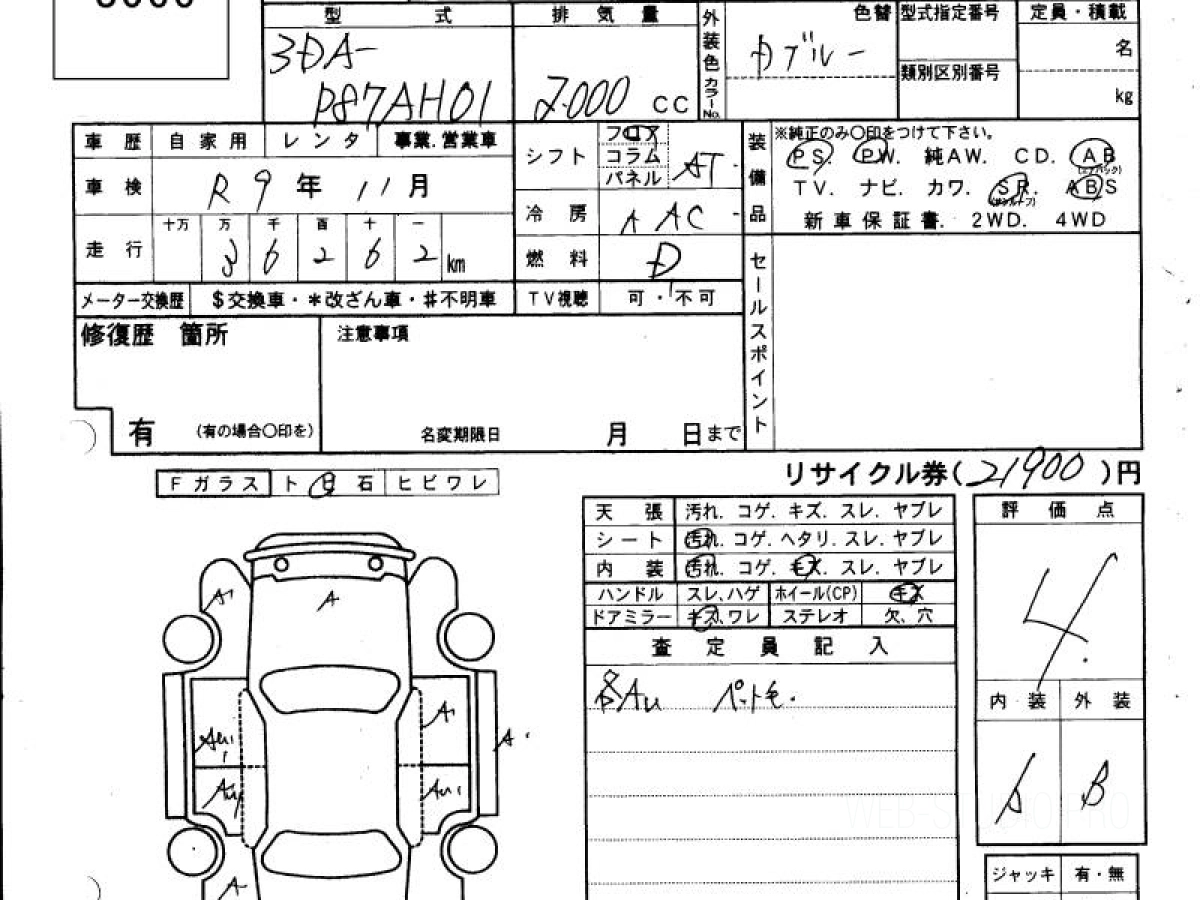 型式 排気量 外装色 カラーNo. 色替 型式指定番号 定員・積載
3DA- ブルー 名
類別区別番号
P87AH01 2000 CC kg
車歴 自家用 レンタ 事業.営業車 シフト フロア 装備品 ※純正のみ〇印をつけて下さい。
コラム AT PS. PW. 純AW. CD. AB
(エアバック)
車検 R9年11月 パネル TV. ナビ. カワ. SR. ABS
(サンルーフ)
十万 万 千 百 十 一 冷房 AAC 新車保証書. 2WD. 4WD
走行 3 6 2 6 2 km 燃料 D セールスポイント
メーター交換歴 $交換車・*改ざん車・#不明車 TV視聴 可・不可
修復歴 箇所 注意事項
有 (有の場合〇印を) 名変期限日 月 日まで
リサイクル券(21900)円
Fガラス ト 石 ヒビワレ
天張 汚れ. コゲ. キズ. スレ. ヤブレ 評価点
シート 汚れ. コゲ. ヘタリ. スレ. ヤブレ
内装 汚れ. コゲ. キズ. スレ. ヤブレ
ハンドル スレ、ハゲ ホイール(CP) キズ
ドアミラー キズ、ワレ ステレオ 欠、穴
A A 4.
査定員記入
各AU ペット毛. 内装 外装
A A
AU1
AU1 B
WEB-STUDIO.PRO
ジャッキ 有・無
A